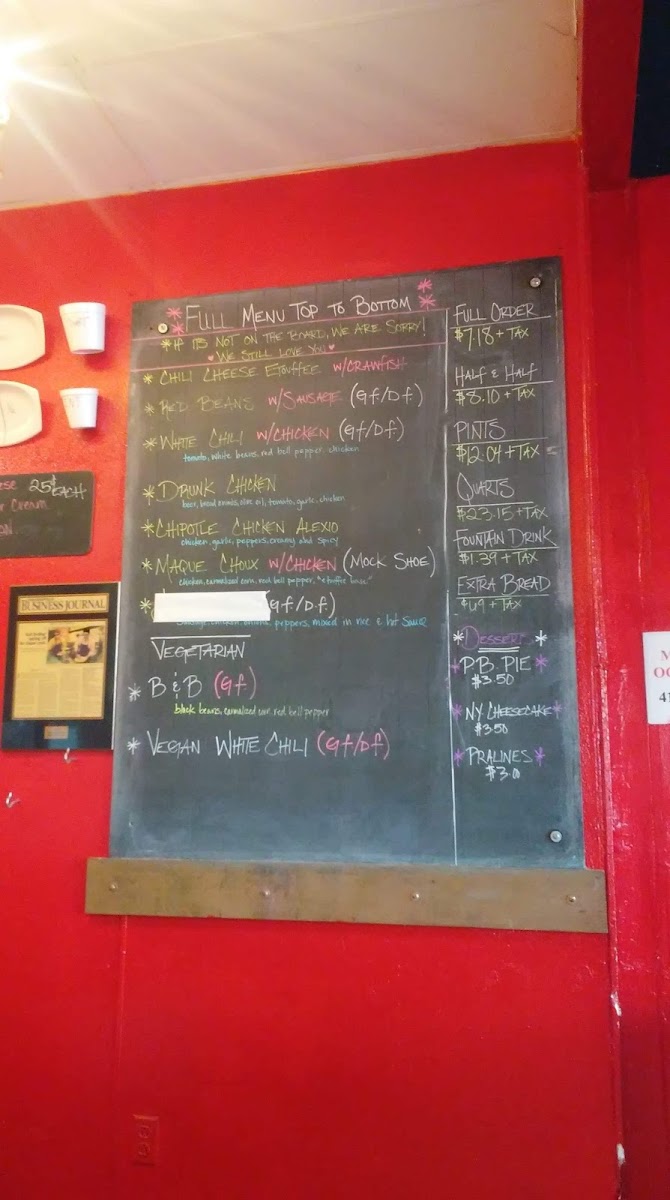 FULL MENU TOP TO BOTTOM
*IF ITS NOT ON THE BOARD, WE ARE SORRY!
♥WE STILL LOVE YOU♥
* CHILI CHEESE ETOUFFEE W/CRAWFISH
* RED BEANS W/SAUSAGE (Gf/Df)
* WHITE CHILI W/CHICKEN (Gf/Df)
tomato, white beans, red bell pepper, chicken
* DRUNK CHICKEN
beer, bread crumbs, olive oil, tomato, garlic, chicken
* CHIPOTLE CHICKEN ALEXIO
chicken, garlic, peppers, creamy and spicy
* MAQUE CHOUX W/CHICKEN (MOCK SHOE)
chicken, carmalized corn, red bell pepper, "etouffee base"
* (Gf/Df)
sausage, chicken, onions, peppers, mixed in rice & hot sauce
VEGETARIAN
* B & B (Gf)
black beans, carmalized corn, red bell pepper
* VEGAN WHITE CHILI (Gf/Df)
FULL ORDER
$7.18 + TAX
HALF & HALF
$8.10 + TAX
PINTS
$12.04 + TAX
QUARTS
$23.15 + TAX
FOUNTAIN DRINK
$1.39 + TAX
EXTRA BREAD
$.49 + TAX
*DESSERT*
*P.B. PIE*
$3.50
*NY CHEESECAKE*
$3.50
*PRALINES*
$3.00
25¢
EACH
Cream
BUSINESS JOURNAL